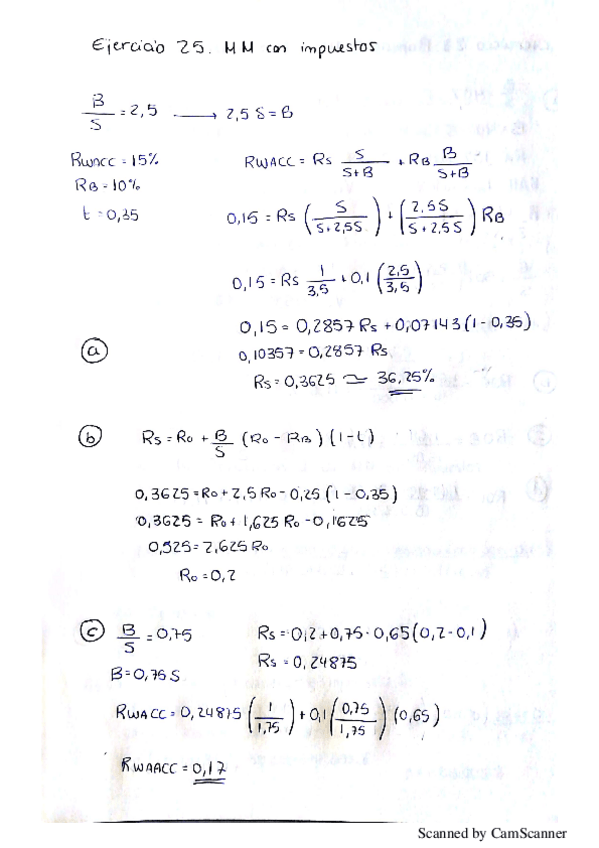 Ejercicio 25. MM con impuestos
B/S = 2,5 → 2,5 S = B
RWACC = 15%
RB = 10%
t = 0,35
RWACC = Rs S/(S+B) + RB B/(S+B)
0,15 = Rs (S/(S+2,5S)) + (2,5S/(S+2,5S)) RB
0,15 = Rs 1/3,5 + 0,1 (2,5/3,5)
0,15 = 0,2857 Rs + 0,07143 (1-0,35)
ⓐ
0,10357 = 0,2857 Rs
Rs = 0,3625 ≃ 36,25%
ⓑ Rs = Ro + B/S (Ro - RB) (1-t)
0,3625 = Ro + 2,5 Ro - 0,25 (1-0,35)
0,3625 = Ro + 1,625 Ro - 0,1625
0,525 = 2,625 Ro
Ro = 0,2
ⓒ B/S = 0,75
B = 0,75 S
Rs = 0,2 + 0,75 · 0,65 (0,2 - 0,1)
Rs = 0,24875
RWACC = 0,24875 (1/1,75) + 0,1 (0,75/1,75) (0,65)
RWAACC = 0,17
Scanned by CamScanner